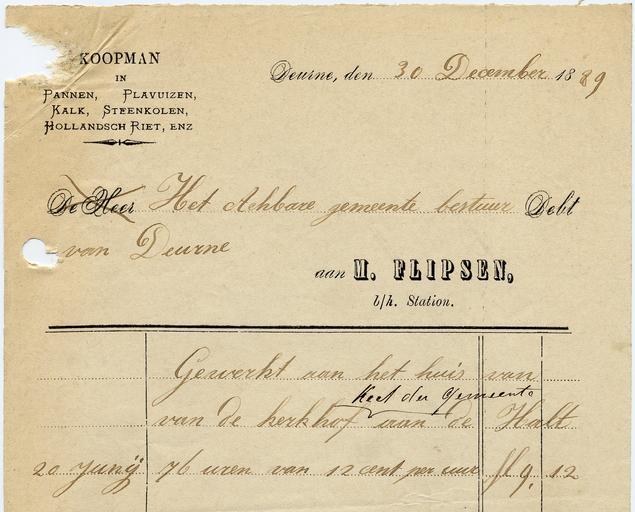 KOOPMAN
IN
PANNEN, PLAVUIZEN,
KALK, STEENKOLEN,
HOLLANDSCH RIET, ENZ
Deurne, den 30 December 1889
De Heer Het Achbare gemeente bestuur Debt
van Deurne
aan M. FLIPSEN,
b/h. Station.
Gewerkt aan het huis van
Keet der Gemeente
van de kerkhof aan de Halt
20 Junij 76 uren van 12 cent per uur fl 9, 12